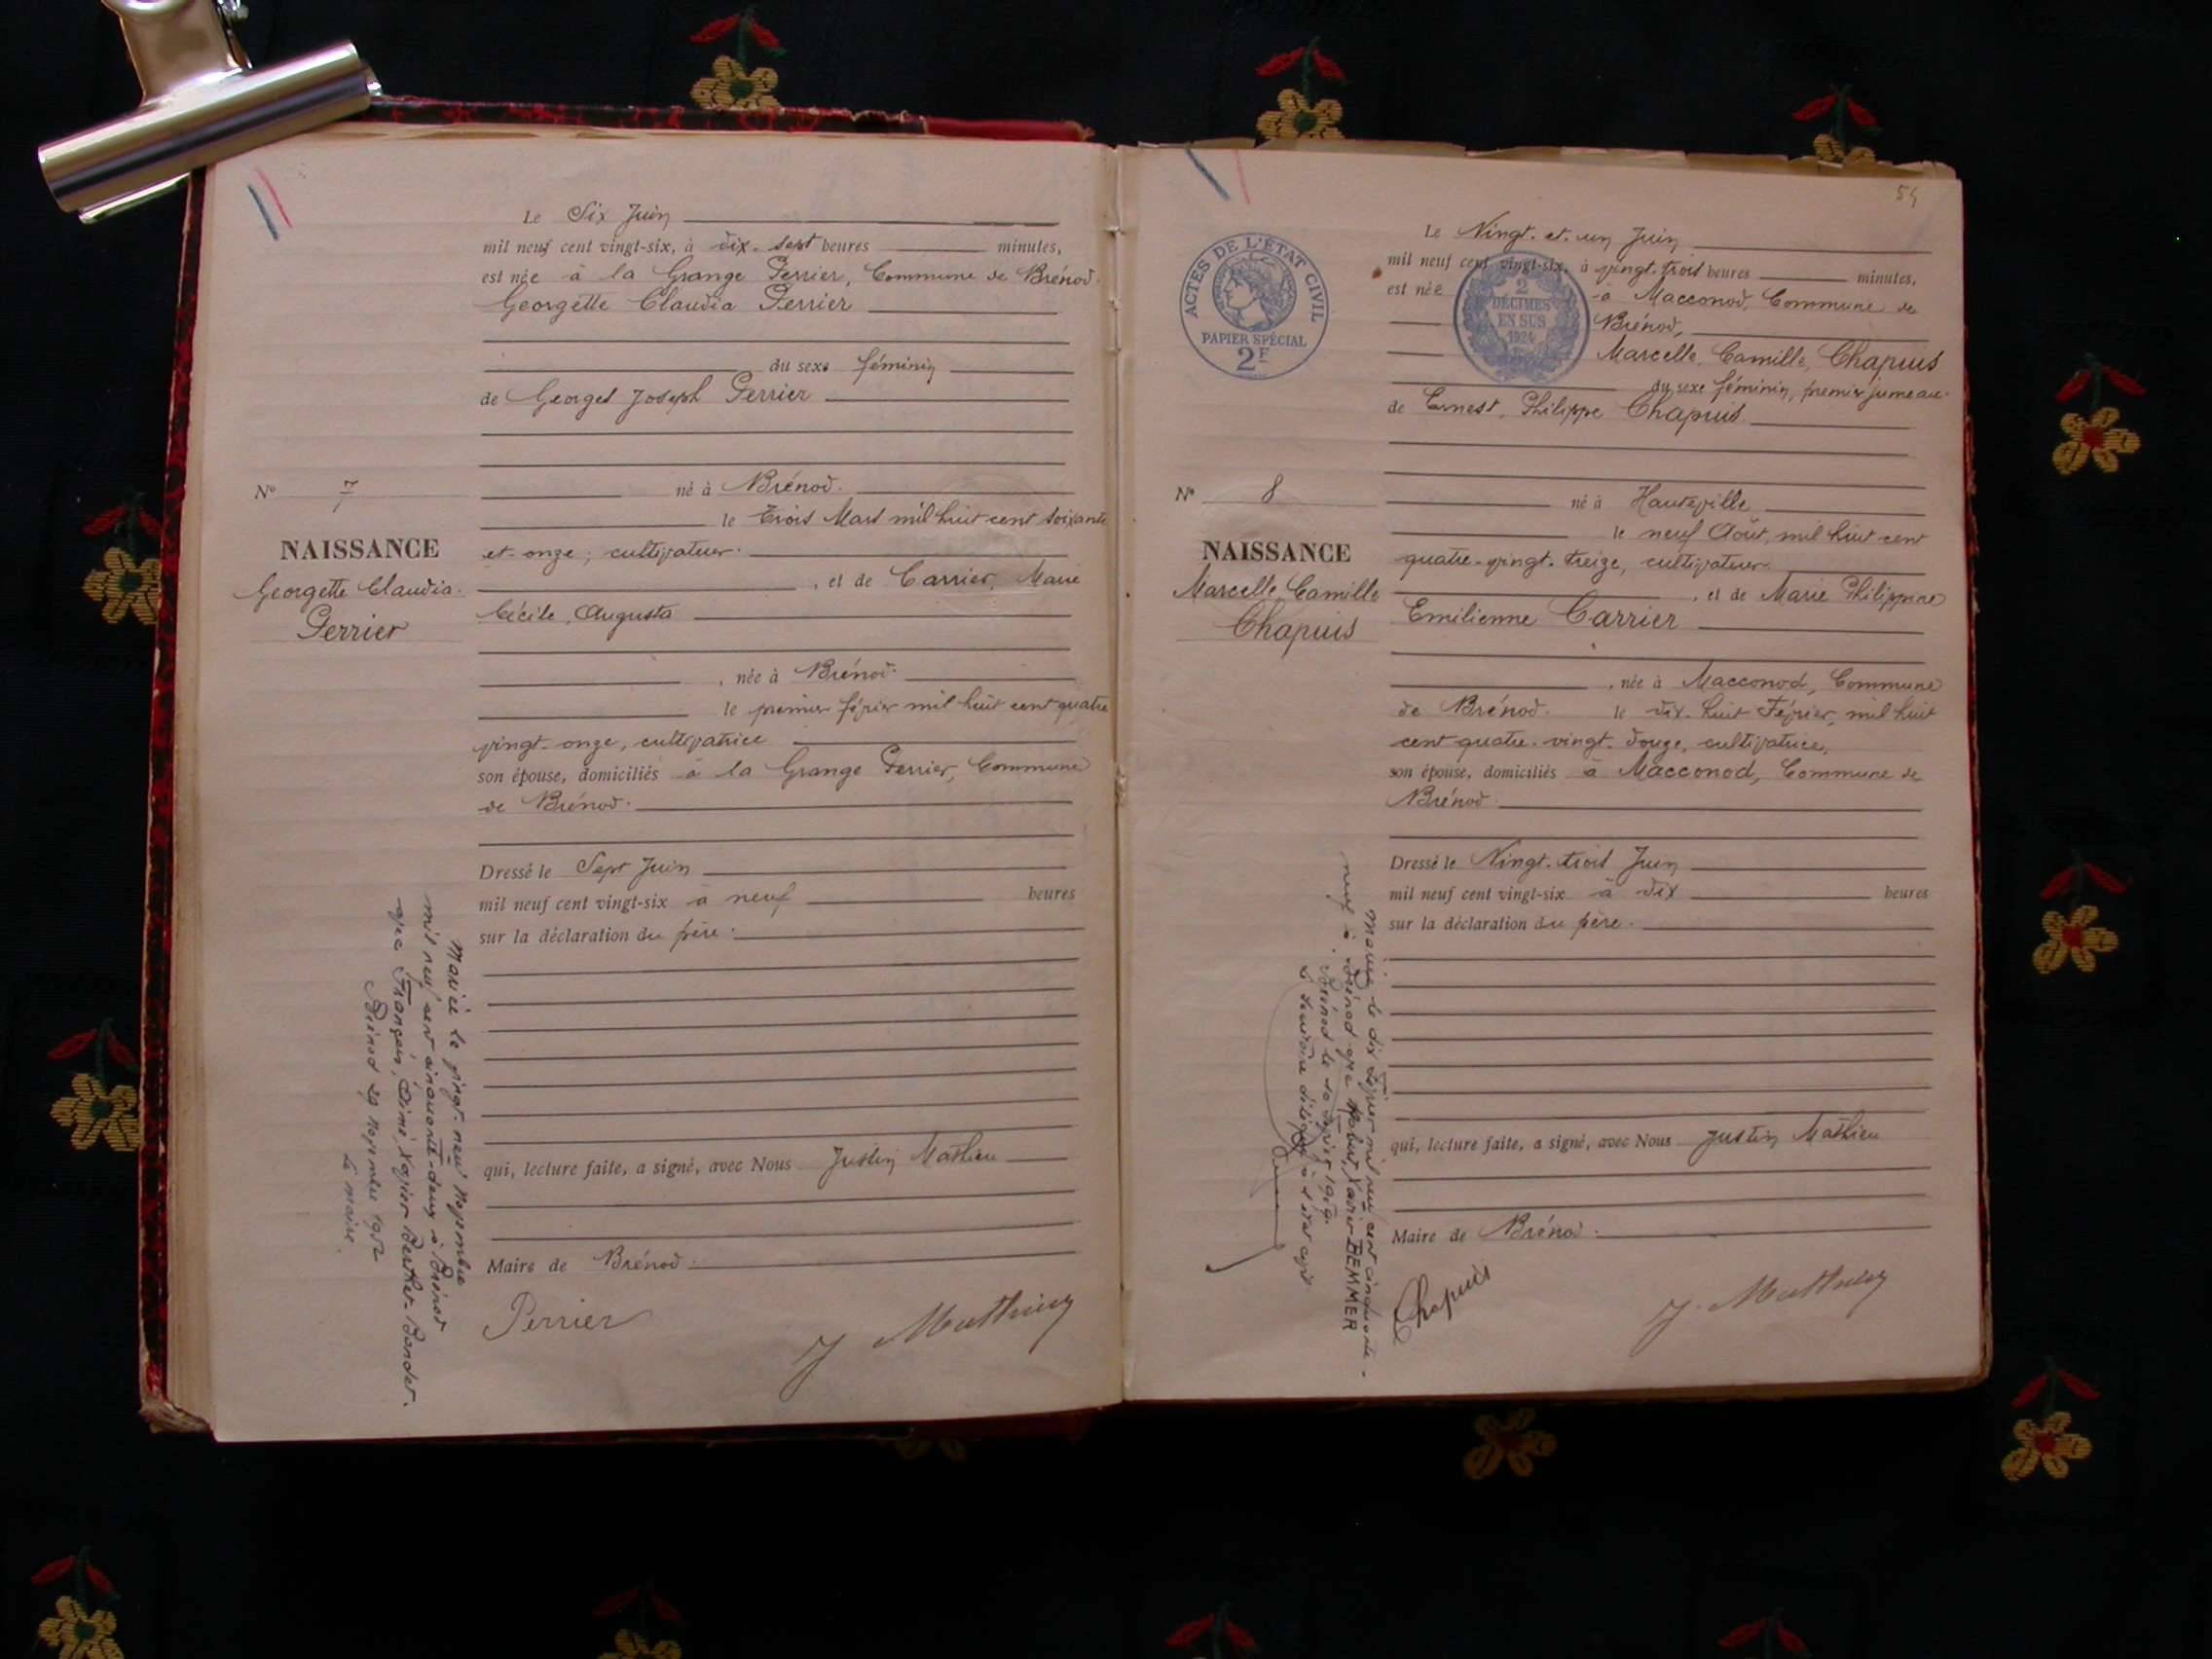 Le Six Juin
mil neuf cent vingt-six, à dix-sept heures minutes,
est née à la Grange Perrier, Commune de Brénod.
Georgette Claudia Perrier
du sexe féminin
de Georges Joseph Perrier
né à Brénod.
le trois Mars mil huit cent soixante
et-onze; cultivateur.
, et de Carrier, Marie
Cécile, Augusta
, née à Brénod.
le premier février mil huit cent quatre
vingt-onze, cultivatrice
son épouse, domiciliés à la Grange Perrier, Commune
de Brénod.
Dressé le Sept Juin
mil neuf cent vingt-six à neuf heures
sur la déclaration du père.
qui, lecture faite, a signé, avec Nous Justin Mathieu
Maire de Brénod.
Perrier
J Mathieu
N° 7
NAISSANCE
Georgette Claudia
Perrier
Mariée le vingt-neuf Novembre
mil neuf cent cinquante-deux à Brénod
avec François, Aimé, Xavier Berthet-Bondet.
Brénod 29 Novembre 1952
Le maire.
54
ACTES DE L'ÉTAT CIVIL
PAPIER SPÉCIAL
2F
2
DÉCIMES
EN SUS
1924
Le Vingt-et-un Juin
mil neuf cent vingt-six, à vingt-trois heures minutes,
est née à Macconod, Commune de
Brénod,
Marcelle, Camille, Chapuis
du sexe féminin, premier jumeau.
de Ernest, Philippe Chapuis
né à Hauteville
le neuf Août, mil huit cent
quatre-vingt-treize, cultivateur.
, et de Marie Philippine
Emilienne Carrier
, née à Macconod, Commune
de Brénod. le dix-huit Février, mil huit
cent quatre-vingt-douze, cultivatrice,
son épouse, domiciliés à Macconod, Commune de
Brénod.
Dressé le Vingt-trois Juin
mil neuf cent vingt-six à dix heures
sur la déclaration du père.
qui, lecture faite, a signé, avec Nous Justin Mathieu
Maire de Brénod.
Chapuis
J. Mathieu
N° 8
NAISSANCE
Marcelle Camille
Chapuis
Mariée le dix Février mil neuf cent cinquante-
neuf à Brénod avec Xavier BEMMER
Brénod le 10 Février 1959.
Le secrétaire délégué à l'état civil.